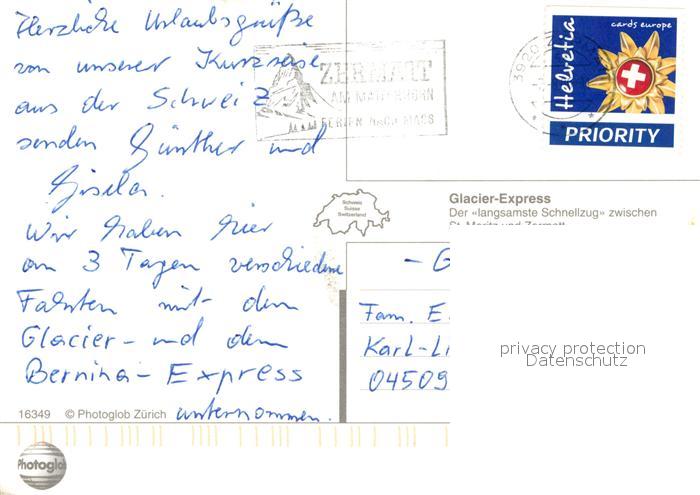 Herzliche Urlaubsgrüße
von unserer Kurzreise
aus der Schweiz
senden Günther und
Gisela.
Wir haben hier
an 3 Tagen verschiedene
Fahrten mit dem
Glacier- und dem
Bernina-Express
unternommen.
16349 © Photoglob Zürich
Photoglob
ZERMATT
AM MATTERHORN
FERIEN NACH MASS
3920
cards europe
Helvetia
PRIORITY
Schweiz
Suisse
Switzerland
Glacier-Express
Der «langsamste Schnellzug» zwischen
St. Moritz und Zermatt
Fam. E.
Karl-Li
04509
privacy protection
Datenschutz